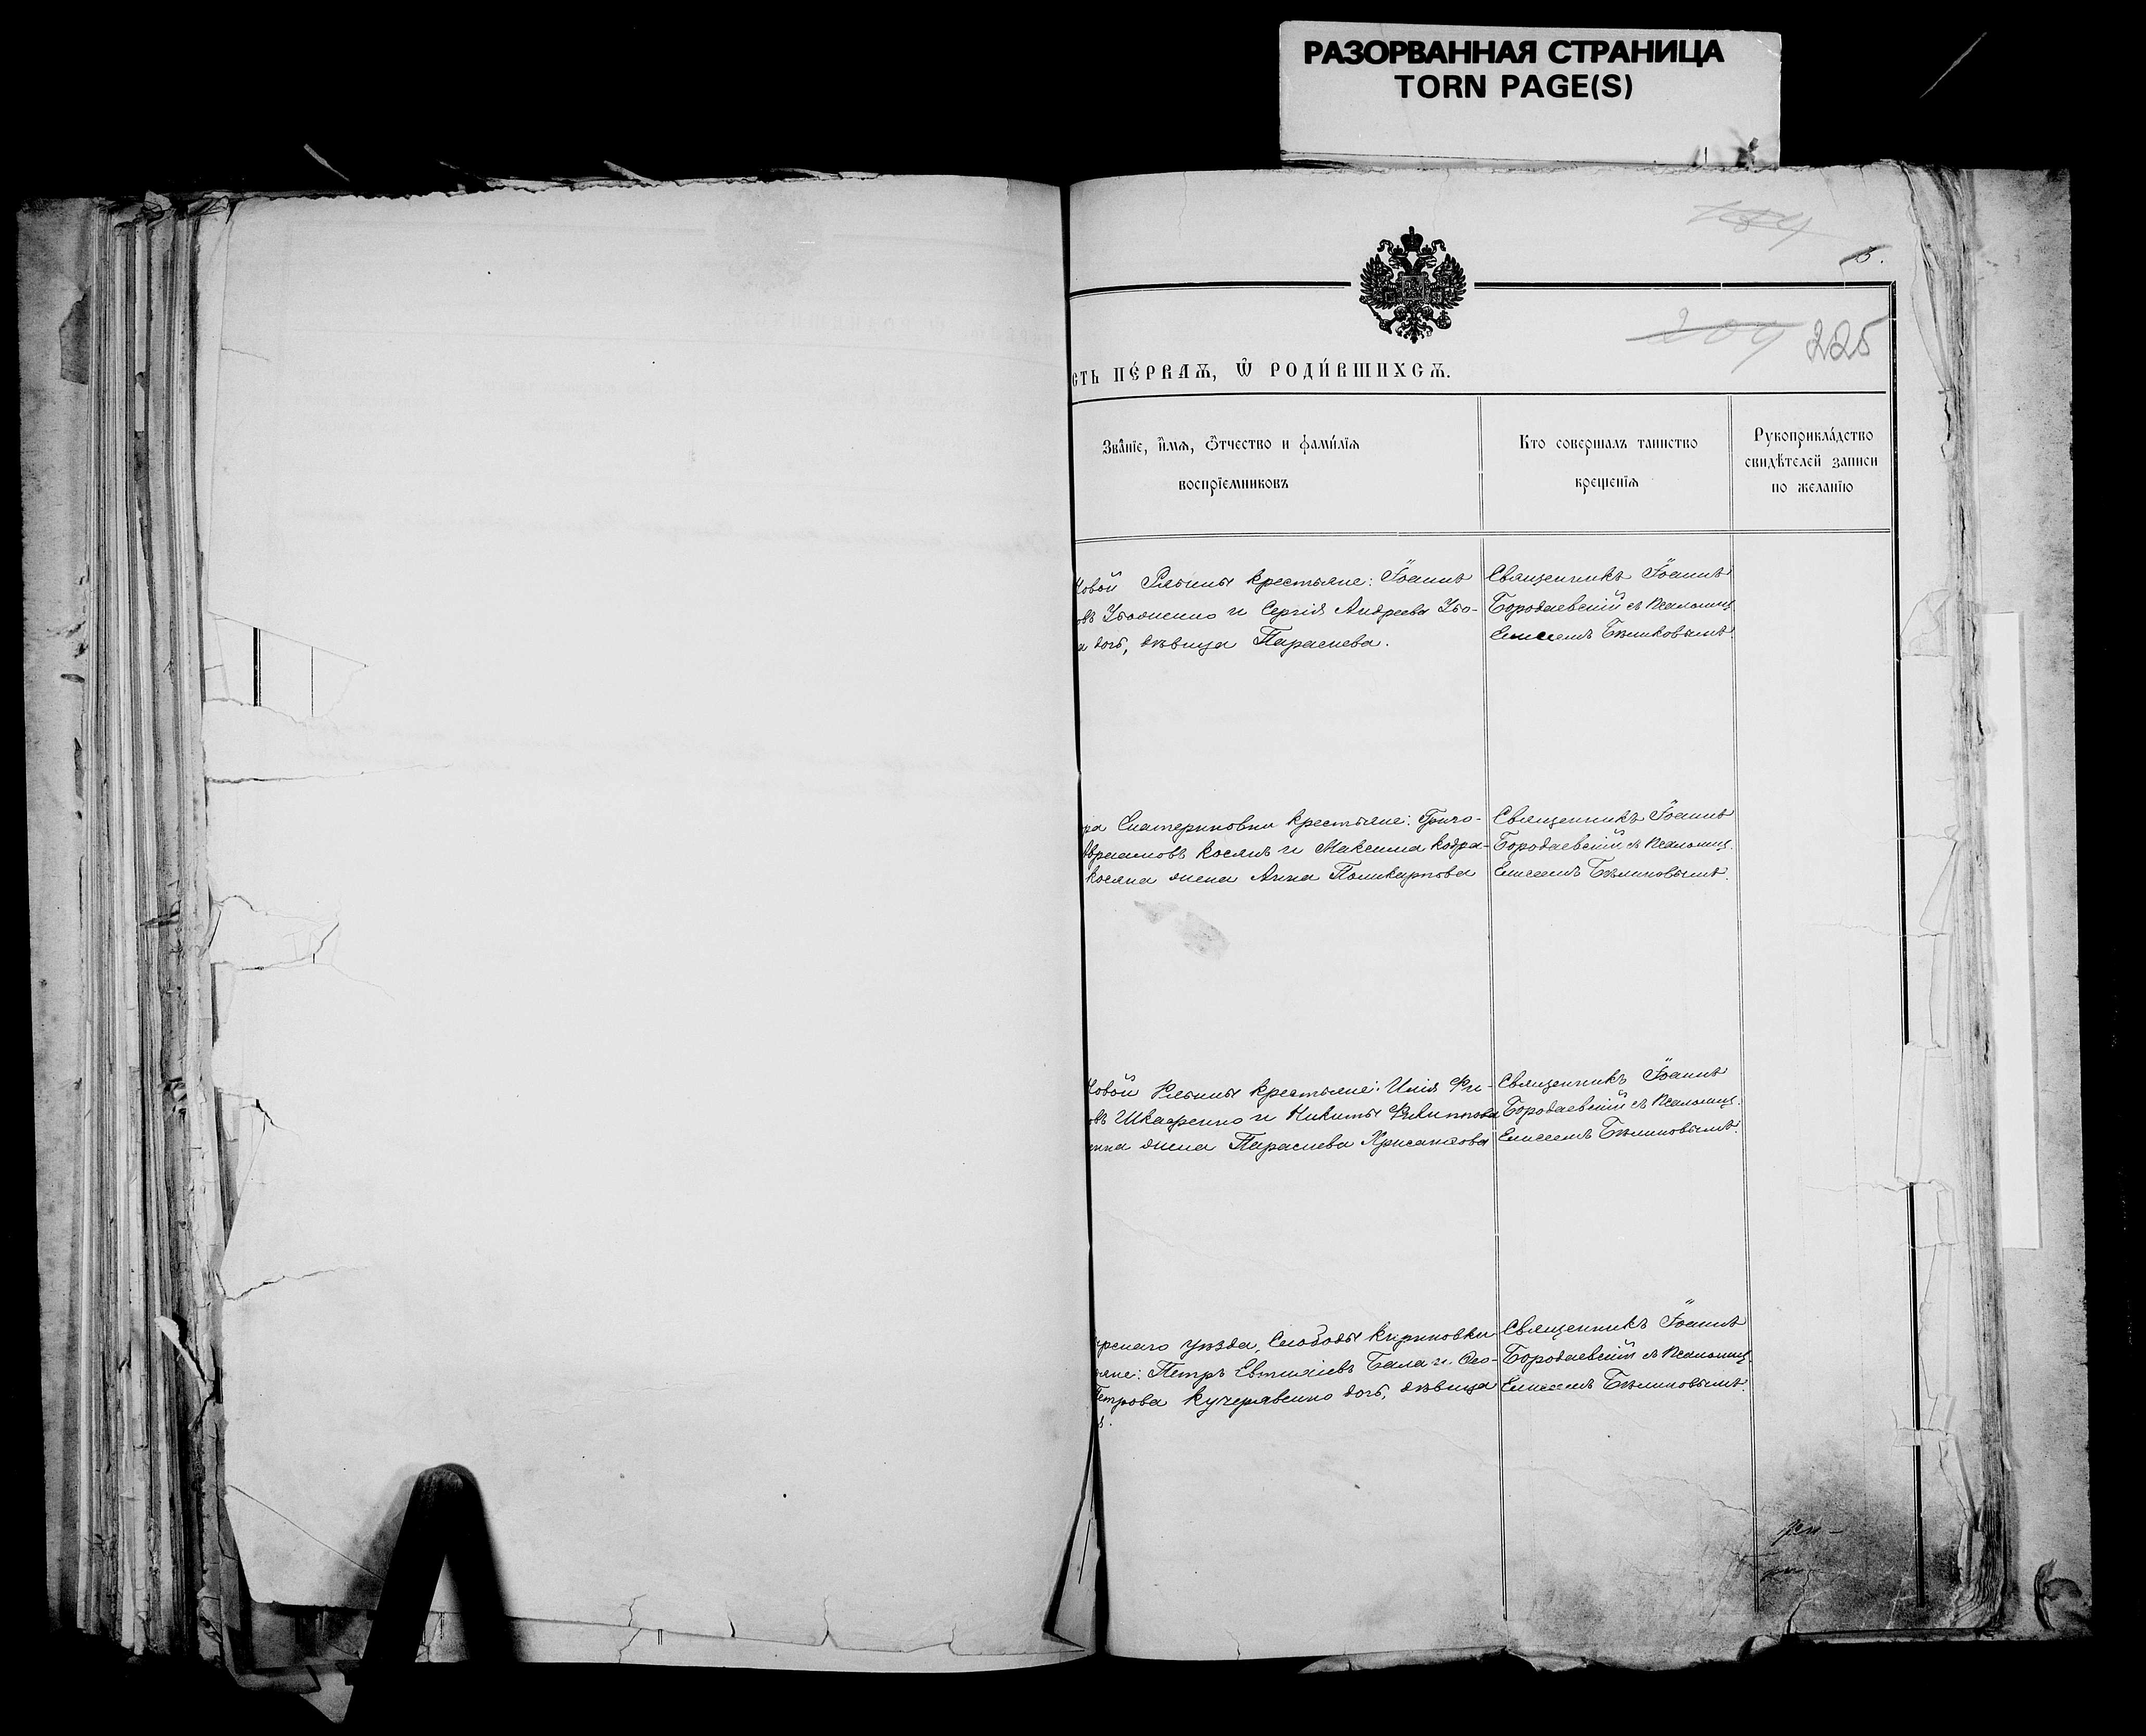 РАЗОРВАННАЯ СТРАНИЦА
TORN PAGE(S)
184
5.
209 225
сть пе́рваѧ, ѿ роди́вшихсѧ.
Зва́нїе, и҆́мѧ, ѻ҆́тчество и фами́лїѧ
воспрїемниковъ
Кто совершалъ таинство
крещенїѧ
Рукоприкла́дство
свидѣтелей записи
по желанїю
ковой Рябины крестьяне: Іоаннъ
и Сергія Андреева
а дочь, дѣвица Параскева.
Священникъ Іоаннъ
Бородаевскій съ псаломщ.
Елисеемъ Бѣликовымъ
ра Екатериновки крестьяне: Григо-
Косякъ и Максима Кодра-
Косяка жена Анна Поликарпова
Священникъ Іоаннъ
Бородаевскій съ псаломщ.
Елисеемъ Бѣликовымъ.
ковой Рябины крестьяне: Илія Фи-
овъ Шкафенко и Никиты Филиппова
енка жена Параскева Хрисанѳова
Священникъ Іоаннъ
Бородаевскій съ псаломщ.
Елисеемъ Бѣликовымъ.
рскаго уѣзда, Слободы Кириковки
яне: Петръ Евтихіевъ Бала и
Петрова Кучерявенко дочь, дѣвица
Священникъ Іоаннъ
Бородаевскій съ псаломщ.
Елисеемъ Бѣликовымъ.